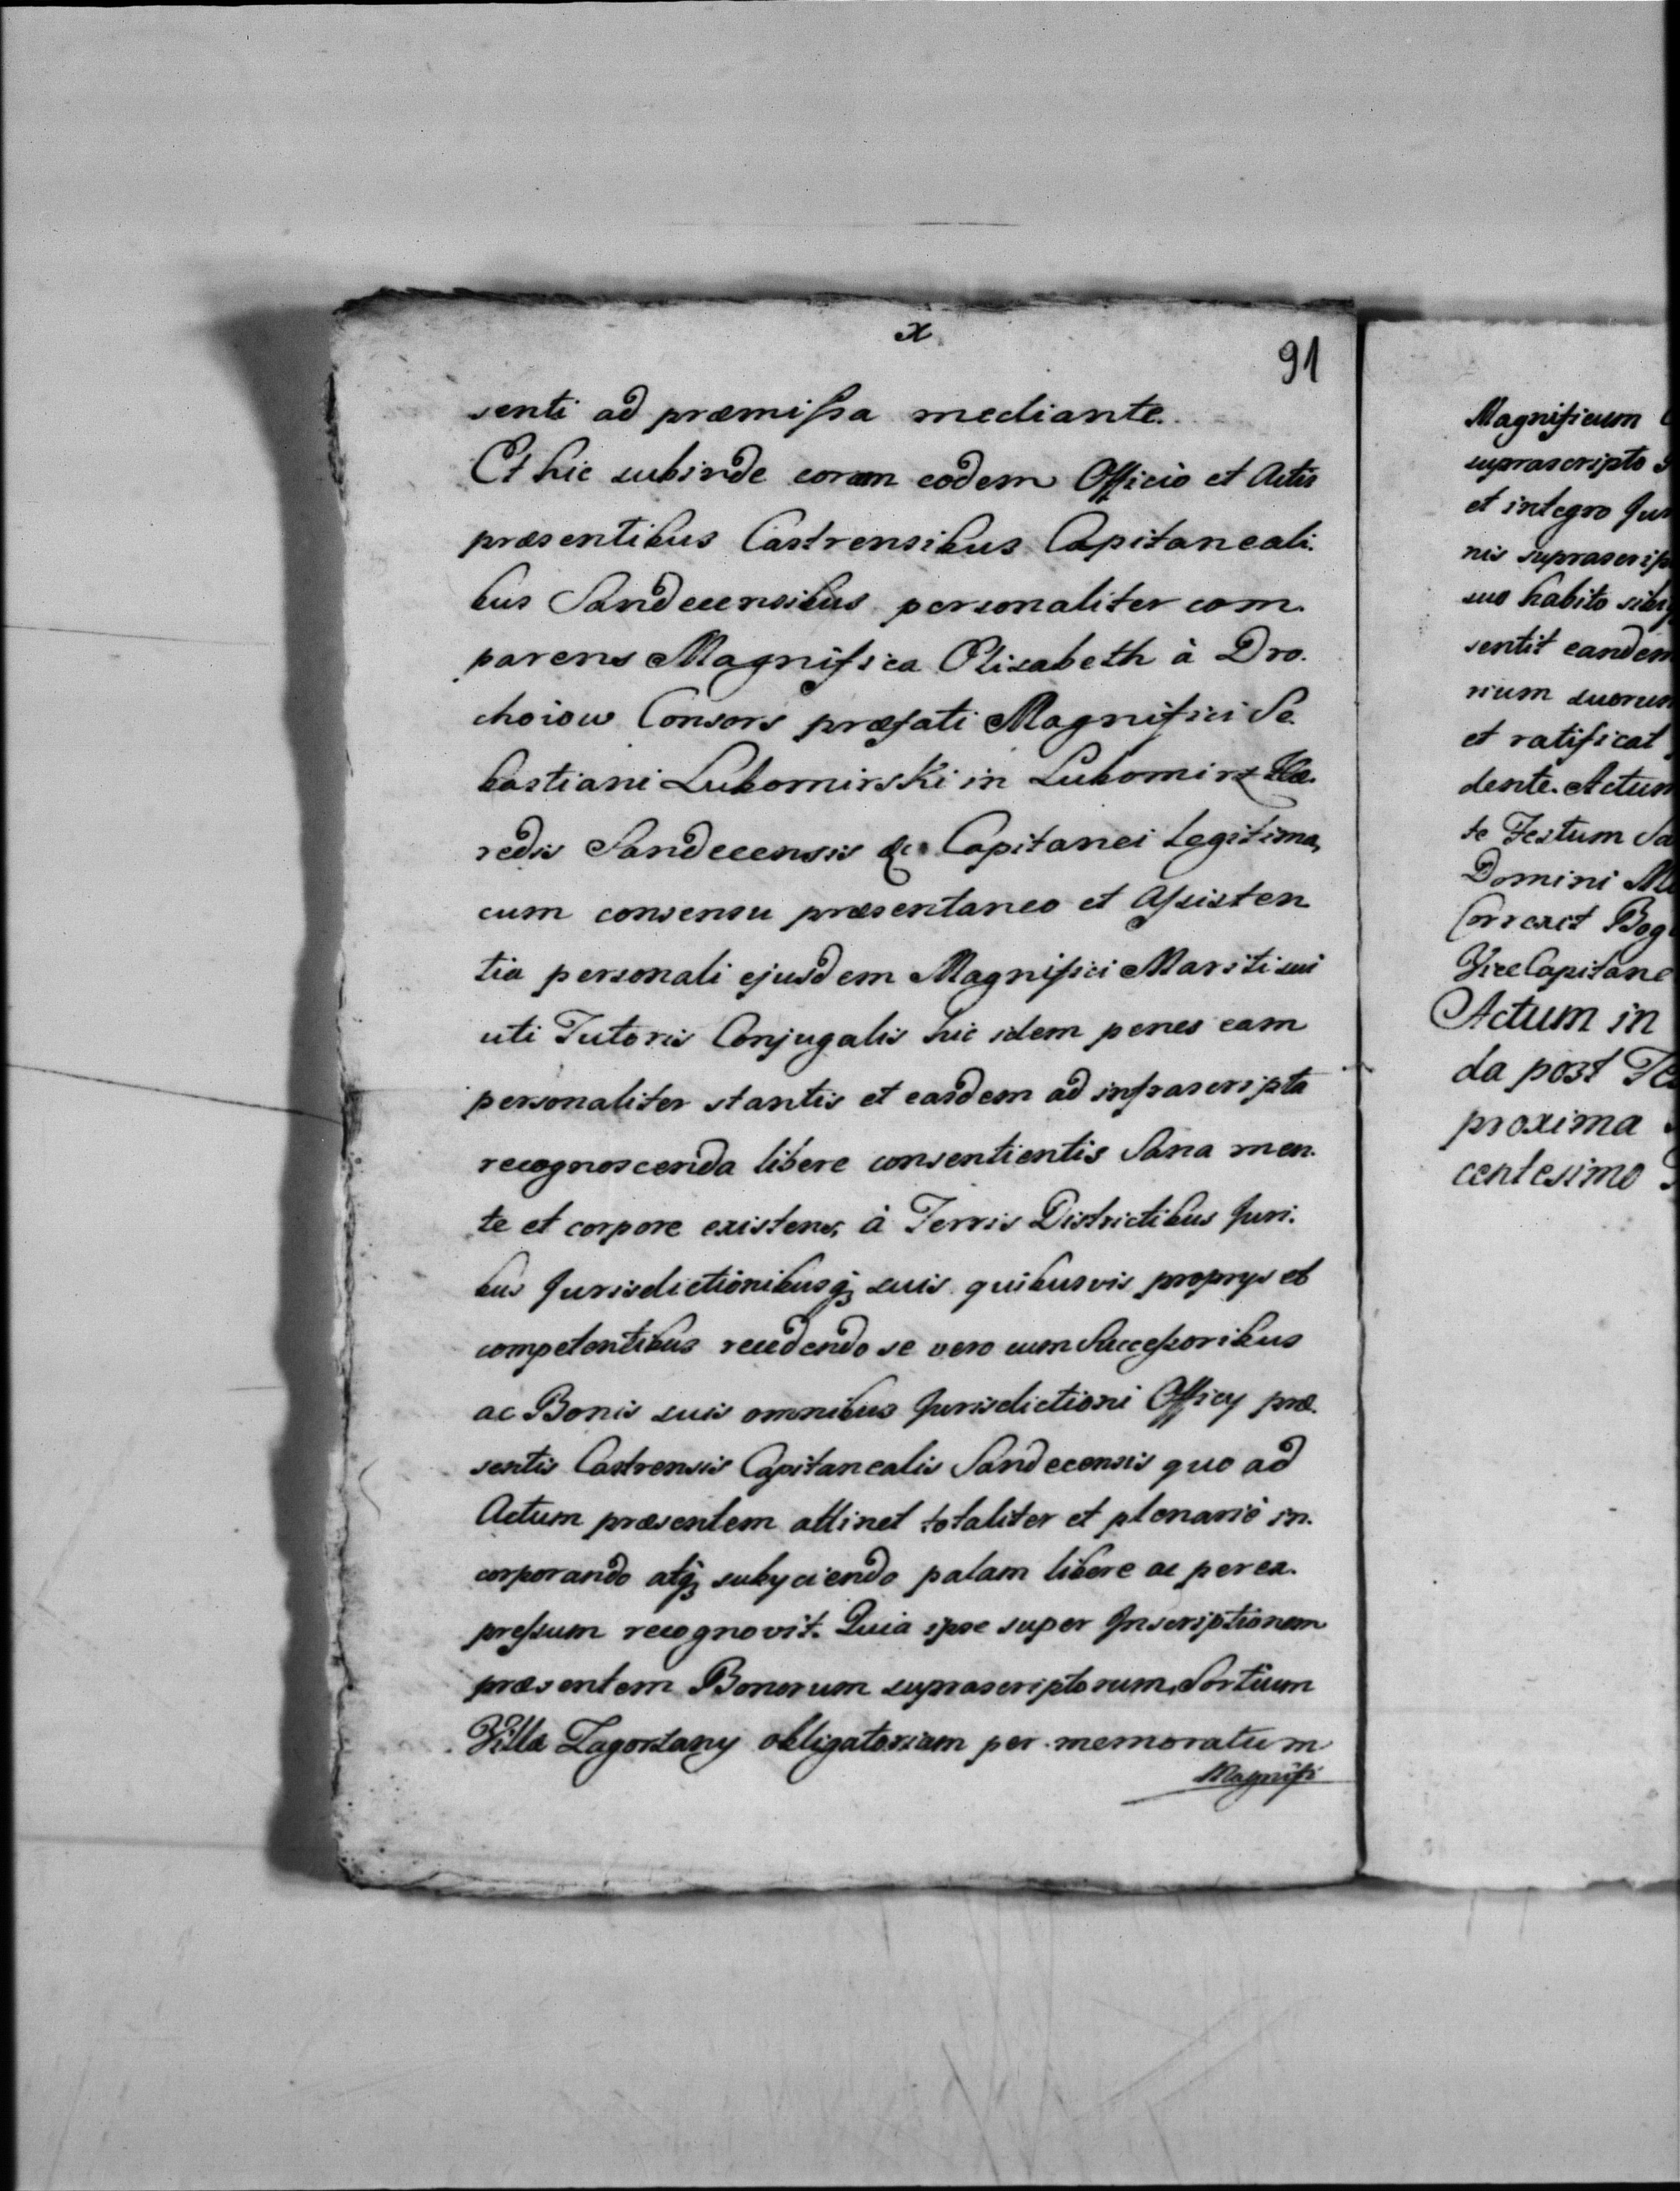 x
91
senti ad præmissa mediante.
Et hic subinde coram eodem Officio et Actis
præsentibus Castrensibus Capitaneali.
bus Sandecensibus personaliter com.
parens Magnifica Elisabeth à Dro.
choiow Consors præfati Magnifici Se.
bastiani Lubomirski in Lubomirz Hæ.
redis Sandecensis &c. Capitanei Legitima,
cum consensu præsentaneo et Assisten
tia personali ejusdem Magnifici Mariti sui
uti Tutoris Conjugalis hic idem penes eam
personaliter stantis et eadem ad infrascripta
recognoscenda libere consentientis Sana men.
te et corpore existens, à Terris Districtibus Juri.
bus Jurisdictionibusq; suis quibusvis proprys et
competentibus recedendo se vero cum Successoribus
ac Bonis suis omnibus Jurisdictioni Officy præ.
sentis Castrensis Capitanealis Sandecensis quo ad
Actum præsentem attinet totaliter et plenarie in.
corporando atq; subyciendo palam libere ac per ex.
pressum recognovit. Quia ipse super Inscriptionem
præsentem Bonorum suprascriptorum, Sortium
Villæ Zagorzany obligatoriam per memoratum
Magnifi
Magnificum
suprascripto
et integro Jur
nis suprascrip
suo habito sibi
sentit eandem
rium suorum
et ratificat
dente. Actum
te Festum Sa
Domini
Correxit Bog
Vice Capitane
Actum in
da post Fe
proxima
centesimo